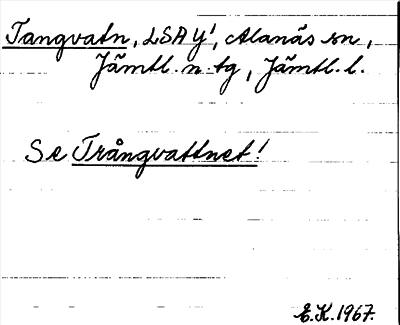 Tangvatn, LSA Y!, Alanäs sn,
Jämtl. n. tg, Jämtl. l.
Se Trångvattnet!
E.K. 1967.